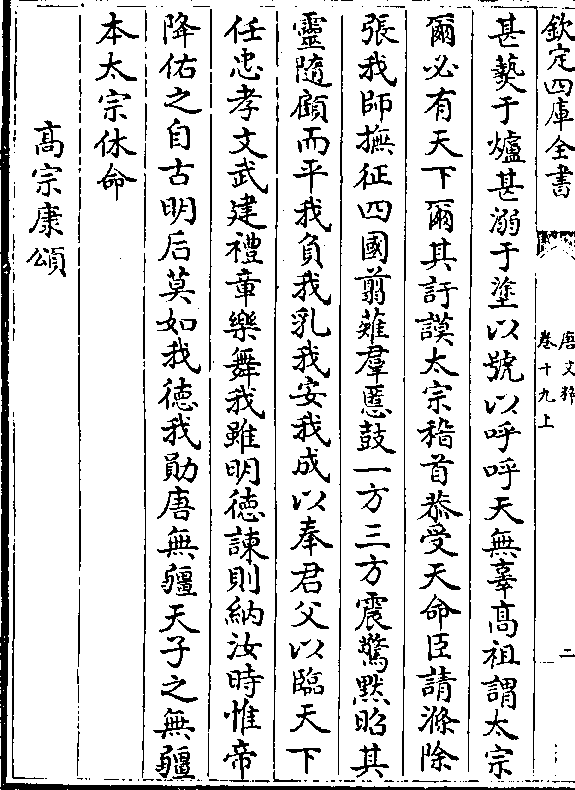 欽定四庫全書
唐文粹
卷十九上
二
甚爇于爐甚溺于塗以號以呼呼天無辜高祖謂太宗
爾必有天下爾其訏謨太宗稽首恭受天命臣請滌除
張我師撫征四國翦薙羣慝鼓一方三方震驚默昭其
靈隨顧而平我負我乳我安我成以奉君父以臨天下
任忠孝文武建禮章樂舞我雖明徳諫則納汝時惟帝
降佑之自古明后莫如我徳我勛唐無疆天子之無疆
本太宗休命
高宗康頌